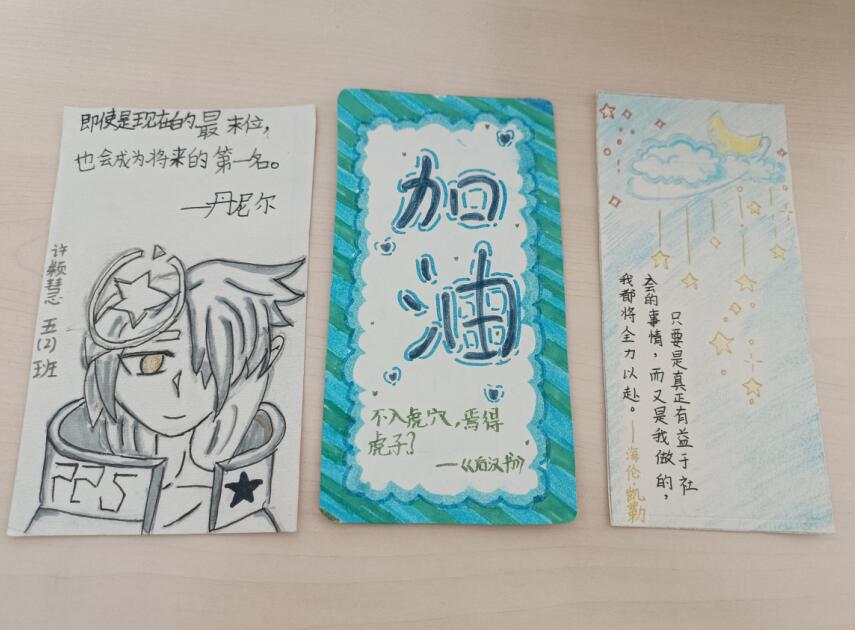 即使是现在的最末位，
也会成为将来的第一名。
——丹尼尔
许颖慧 五(2)班
225
加
油
不入虎穴，焉得
虎子？
——《后汉书》
只要是真正有益于社
会的事情，而又是我做的，
我都将全力以赴。——海伦·凯勒